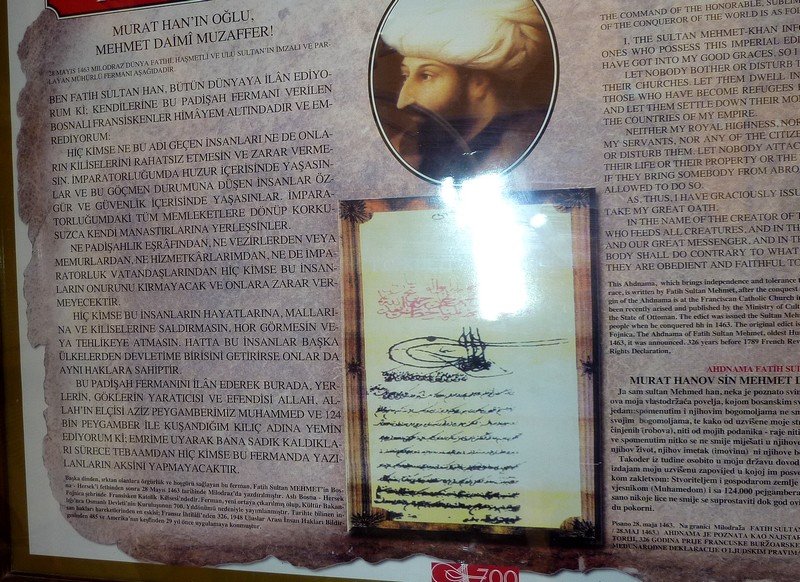 MURAT HAN'IN OĞLU,
MEHMET DAİMİ MUZAFFER!
28 MAYIS 1463 MILODRAZ DÜNYA FATİHİ, HAŞMETLİ VE ULU SULTAN'IN İMZALI VE PAR-
LAYAN MÜHÜRLÜ FERMANI AŞAĞIDADIR.
BEN FATİH SULTAN HAN, BÜTÜN DÜNYAYA İLÂN EDİYO-
RUM Kİ; KENDİLERİNE BU PADİŞAH FERMANI VERİLEN
BOSNALI FRANSİSKENLER HİMÂYEM ALTINDADIR VE EM-
REDİYORUM:
HİÇ KİMSE NE BU ADI GEÇEN İNSANLARI NE DE ONLA-
RIN KİLİSELERİNİ RAHATSIZ ETMESİN VE ZARAR VERME-
SİN. İMPARATORLUĞUMDA HUZUR İÇERİSİNDE YAŞASIN-
LAR VE BU GÖÇMEN DURUMUNA DÜŞEN İNSANLAR ÖZ-
GÜR VE GÜVENLİK İÇERİSİNDE YAŞASINLAR. İMPARA-
TORLUĞUMDAKİ TÜM MEMLEKETLERE DÖNÜP KORKU-
SUZCA KENDİ MANASTIRLARINA YERLEŞSİNLER.
NE PADİŞAHLIK EŞRÂFINDAN, NE VEZİRLERDEN VEYA
MEMURLARDAN, NE HİZMETKÂRLARIMDAN, NE DE İMPA-
RATORLUK VATANDAŞLARINDAN HİÇ KİMSE BU İNSAN-
LARIN ONURUNU KIRMAYACAK VE ONLARA ZARAR VER-
MEYECEKTİR.
HİÇ KİMSE BU İNSANLARIN HAYATLARINA, MALLARI-
NA VE KİLİSELERİNE SALDIRMASIN, HOR GÖRMESİN VE-
YA TEHLİKEYE ATMASIN. HATTA BU İNSANLAR BAŞKA
ÜLKELERDEN DEVLETİME BİRİSİNİ GETİRİRSE ONLAR DA
AYNI HAKLARA SAHİPTİR.
BU PADİŞAH FERMANINI İLÂN EDEREK BURADA, YER-
LERİN, GÖKLERİN YARATICISI VE EFENDİSİ ALLAH, AL-
LAH'IN ELÇİSİ AZİZ PEYGAMBERİMİZ MUHAMMED VE 124
BİN PEYGAMBER İLE KUŞANDIĞIM KILIÇ ADINA YEMİN
EDİYORUM Kİ; EMRİME UYARAK BANA SADIK KALDIKLA-
RI SÜRECE TEBAAMDAN HİÇ KİMSE BU FERMANDA YAZI-
LANLARIN AKSİNİ YAPMAYACAKTIR.
Başka dinden, ırktan olanlara özgürlük ve hoşgörü sağlayan bu ferman, Fatih Sultan MEHMET'in Bos-
na - Hersek'i fethinden sonra 28 Mayıs 1463 tarihinde Milodraz'da yazdırılmıştır. Aslı Bosna - Hersek
Fojnica şehrinde Fransisken Katolik Kilisesi'ndedir. Ferman, yeni ortaya çıkarılmış olup, Kültür Bakan-
lığı'nca Osmanlı Devleti'nin Kuruluşunun 700. Yıldönümü nedeniyle yayımlanmıştır. Tarihte bilinen in-
san hakları hareketlerinden en eskisi; Fransız İhtilâli'nden 326, 1948 Uluslar Arası İnsan Hakları Bildir
gesinden 485 ve Amerika'nın keşfinden 29 yıl önce uygulamaya konmuştur.
THE COMMAND OF THE HONORABLE, SUBLIM
OF THE CONQUEROR OF THE WORLD IS AS FO
1. THE SULTAN MEHMET-KHAN INF
ONES WHO POSSESS THIS IMPERIAL ED
HAVE GOT INTO MY GOOD GRACES, SO I
LET NOBODY BOTHER OR DISTURB T
THEIR CHURCHES. LET THEM DWELL IN
THOSE WHO HAVE BECOME REFUGEES
AND LET THEM SETTLE DOWN THEIR MO
THE COUNTRIES OF MY EMPIRE.
NEITHER MY ROYAL HIGHNESS, NOR
MY SERVANTS, NOR ANY OF THE CITIZE
OR DISTURB THEM. LET NOBODY ATTAC
THEIR LIFE OR THEIR PROPERTY OR THE
IF THEY BRING SOMEBODY FROM ABRO
ALLOWED TO DO SO.
AS, THUS, I HAVE GRACIOUSLY ISSU
TAKE MY GREAT OATH.
IN THE NAME OF THE CREATOR OF T
WHO FEEDS ALL CREATURES, AND IN TH
AND OUR GREAT MESSENGER, AND IN T
BODY SHALL DO CONTRARY TO WHAT
THEY ARE OBEDIENT AND FAITHFUL TO
This Ahdnama, which brings independence and tolerance t
race, is written by Fatih Sultan Mehmet, after the conquest
gin of the Ahdnama is at the Franciscan Catholic Church i
been recently arised and published by the Ministry of Cul
the State of Ottoman. The edict was issued the Sultan Meh
people when he conquered bh in 1463. The original edict is
Fojnica. The Ahdnama of Fatih Sultan Mehmet, oldest Hu
1463, it was announced. 326 years before 1789 French Rev
Rights Declaration.
AHDNAMA FATİH SU
MURAT HANOV SİN MEHMET
Ja sam sultan Mehmed han, neka je poznato svim
ova moja vlastodržača povelja, kojom bosanskim
jedam:spomenutim i njihovim bogomoljama ne sm
svojim bogomoljama, te kako od uzvišene moje st
činjenih (robova), niti od mojih podanika - raje niti
ve spomenutim nitko se ne smije miješati u njihove
njihov život, njihov imetak (imovinu) ni njihove b
Također iz tuđine osobito u moju državu dovod
izdajem moju uzvišenu zapovijed u kojoj im posv
kom zakletvom: Stvoriteljem i gospodarom zemlje
vjesnikom (Muhamedom) i sa 124.000 pejgamber
sano nikoje lice ne smije se suprostaviti dok god
du pokorni.
Pisano 28. maja 1463. Na granici Milodraža FATİH SULTA
/ 28.MAJ 1463.) AHDNAMA JE POZNATA KAO NAJSTA
TORIJI, 326 GODINA PRIJE FRANCUSKE BURŽOARSKE
MEĐUNARODNE DEKLARACIJE O LJUDSKIM PRAVIM
700